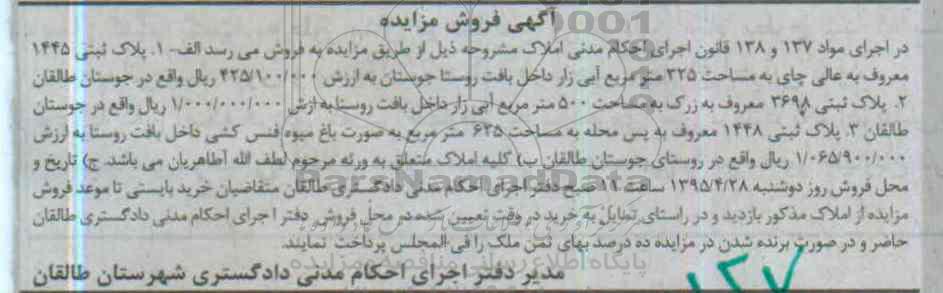 آگهی فروش مزایده
در اجرای مواد ۱۳۷ و ۱۳۸ قانون اجرای احکام مدنی املاک مشروحه ذیل از طریق مزایده به فروش می رسد الف- ۱. پلاک ثبتی ۱۴۴۵
معروف به عالی چای به مساحت ۳۲۵ متر مربع آبی زار داخل بافت روستا جوستان به ارزش ۴۲۵/۱۰۰/۰۰۰ ریال واقع در جوستان طالقان
۲. پلاک ثبتی ۳۶۹۸ معروف به زرک به مساحت ۵۰۰ متر مربع آبی زار داخل بافت روستا به ارزش ۱/۰۰۰/۰۰۰/۰۰۰ ریال واقع در جوستان
طالقان ۳. پلاک ثبتی ۱۴۴۸ معروف به پس محله به مساحت ۶۲۵ متر مربع به صورت باغ میوه فنس کشی داخل بافت روستا به ارزش
۱/۰۶۵/۹۰۰/۰۰۰ ریال واقع در روستای جوستان طالقان ب) کلیه املاک متعلق به ورثه مرحوم لطف الله آطاهریان می باشد. ج) تاریخ و
محل فروش روز دوشنبه ۱۳۹۵/۴/۲۸ ساعت ۱۱ صبح دفتر اجرای احکام مدنی دادگستری طالقان متقاضیان خرید بایستی تا موعد فروش
مزایده از املاک مذکور بازدید و در راستای تمایل به خرید در وقت تعیین شده در محل فروش دفتر اجرای احکام مدنی دادگستری طالقان
حاضر و در صورت برنده شدن در مزایده ده درصد بهای ثمن ملک را فی المجلس پرداخت نمایند.
مدیر دفتر اجرای احکام مدنی دادگستری شهرستان طالقان
ParsNamadData
پایگاه اطلاع رسانی مناقصه و مزایده
۱۳۷